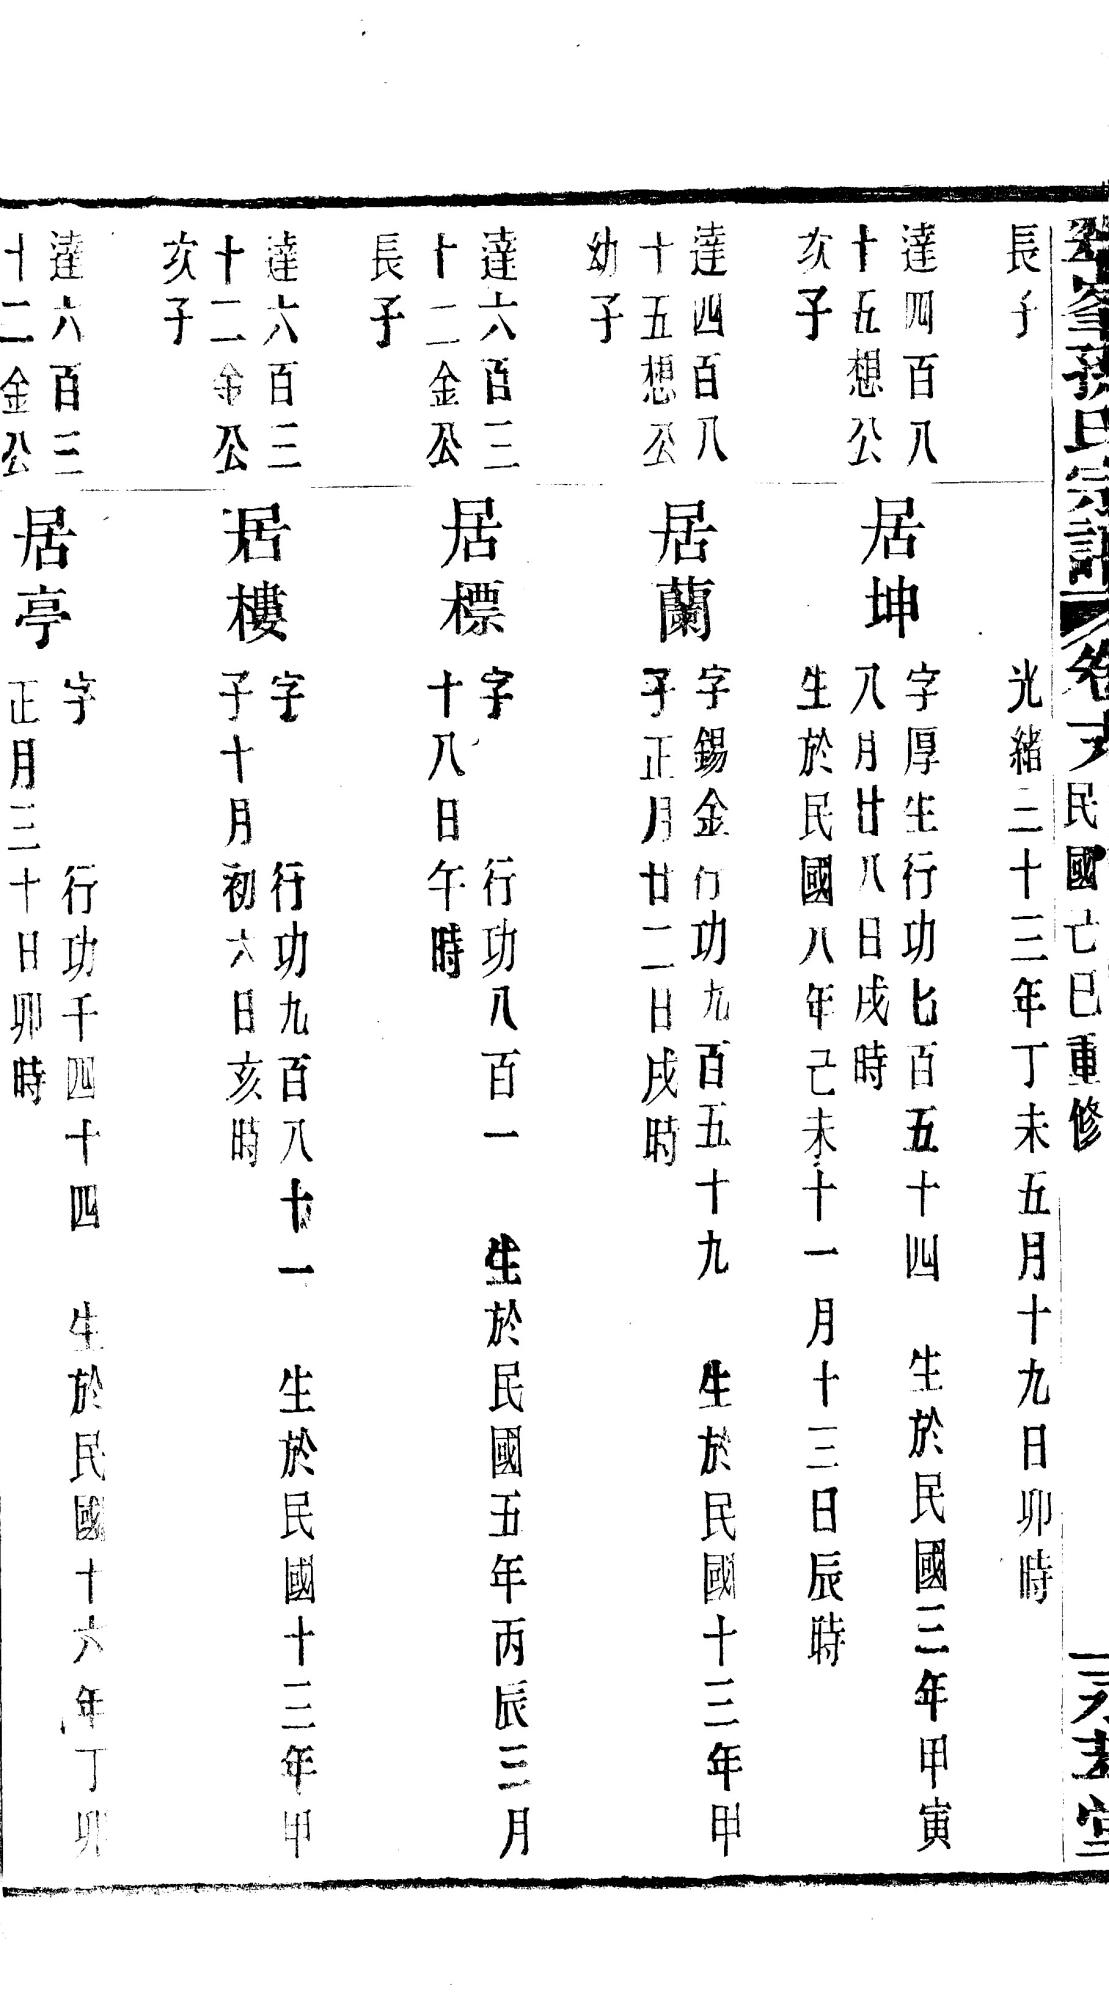 氏宗譜 卷 民國己巳重修 堂
長子
光緒三十三年丁未五月十九日卯時
達四百八
十五想公
次子
居坤
字厚生行功七百五十四 生於民國三年甲寅
八月廿八日戌時
生於民國八年己未十一月十三日辰時
達四百八
十五想公
幼子
居蘭
字錫金行功九百五十九 生於民國十三年甲
子正月廿二日戌時
達六百三
十二金公
長子
居標
字 行功八百一 生於民國五年丙辰三月
十八日午時
達六百三
十二金公
次子
居樓
字 行功九百八十一 生於民國十三年甲
子十月初六日亥時
達六百三
十二金公
居亭
字 行功千四十四 生於民國十六年丁卯
正月三十日卯時